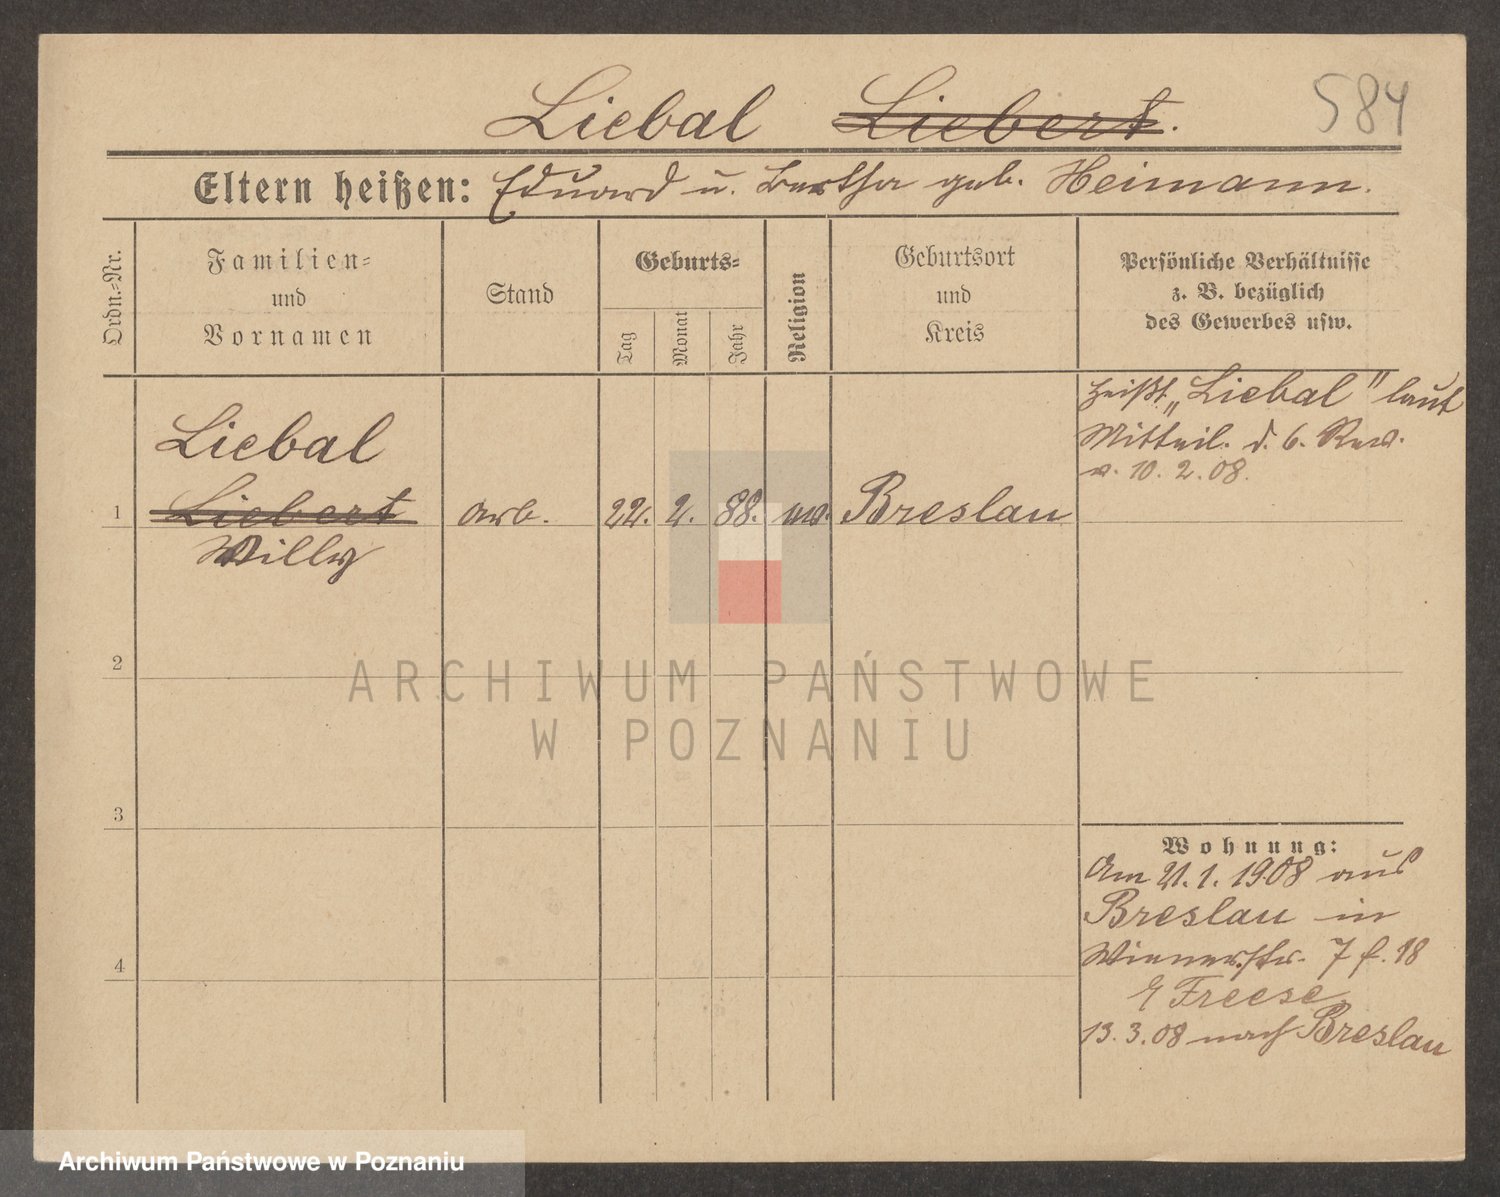 Liebal Liebert.
584
Eltern heißen: Eduard u. Bertha geb. Heimann.
Ordn.-Nr.
Familien-
und
Vornamen
Stand
Geburts-
Tag
Monat
Jahr
Religion
Geburtsort
und
Kreis
Persönliche Verhältnisse
z. B. bezüglich
des Gewerbes usw.
heißt „Liebal" laut
Mitteil. d. 6. Rev.
v. 10. 2. 08.
Liebal
1 Liebert Arb. 22. 2. 88. Breslau
Willy
2
3
4
Wohnung:
Am 21. 1. 1908 aus
Breslau in
Wienerstr. 7 f. 18
Freese
13. 3. 08 nach Breslau
ARCHIWUM PAŃSTWOWE
W POZNANIU
Archiwum Państwowe w Poznaniu